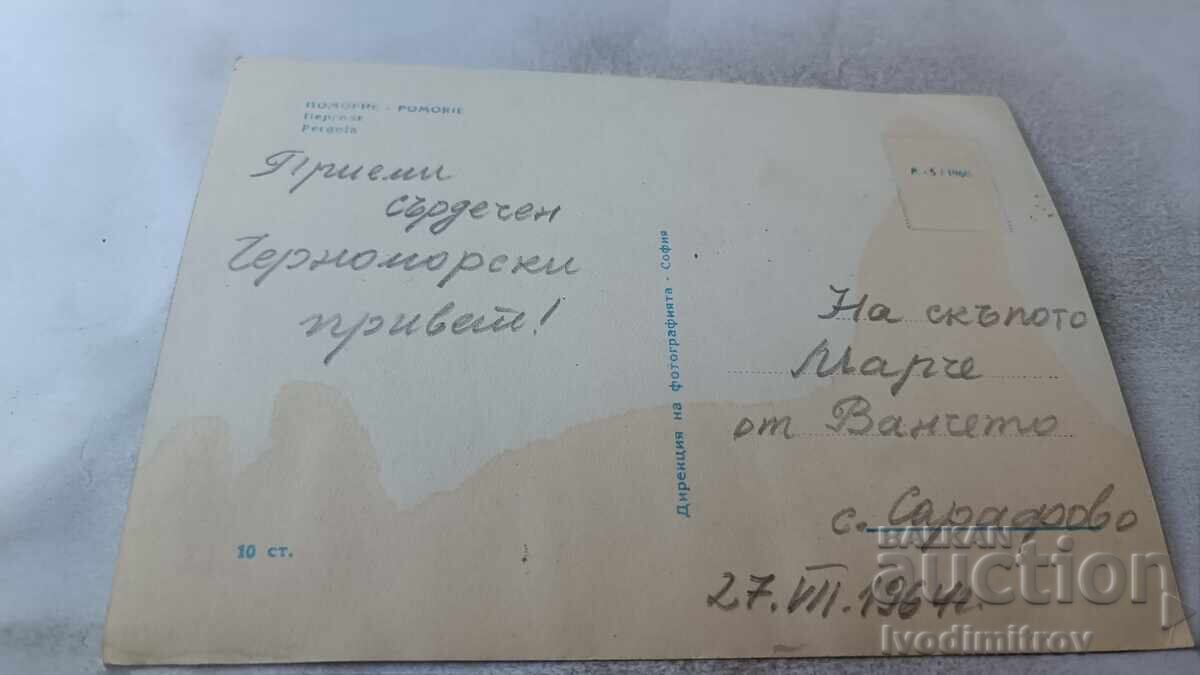 ПОМОРИЕ - POMORIE
Pergola
Приеми
сърдечен
Черноморски
привет!
10 ст.
Дирекция на фотографията - София
На скъпото
Марче
от Ванчето
с. Сарафово
27.VII.1964 г.
БАЛКАН
auction
lvodimitrov